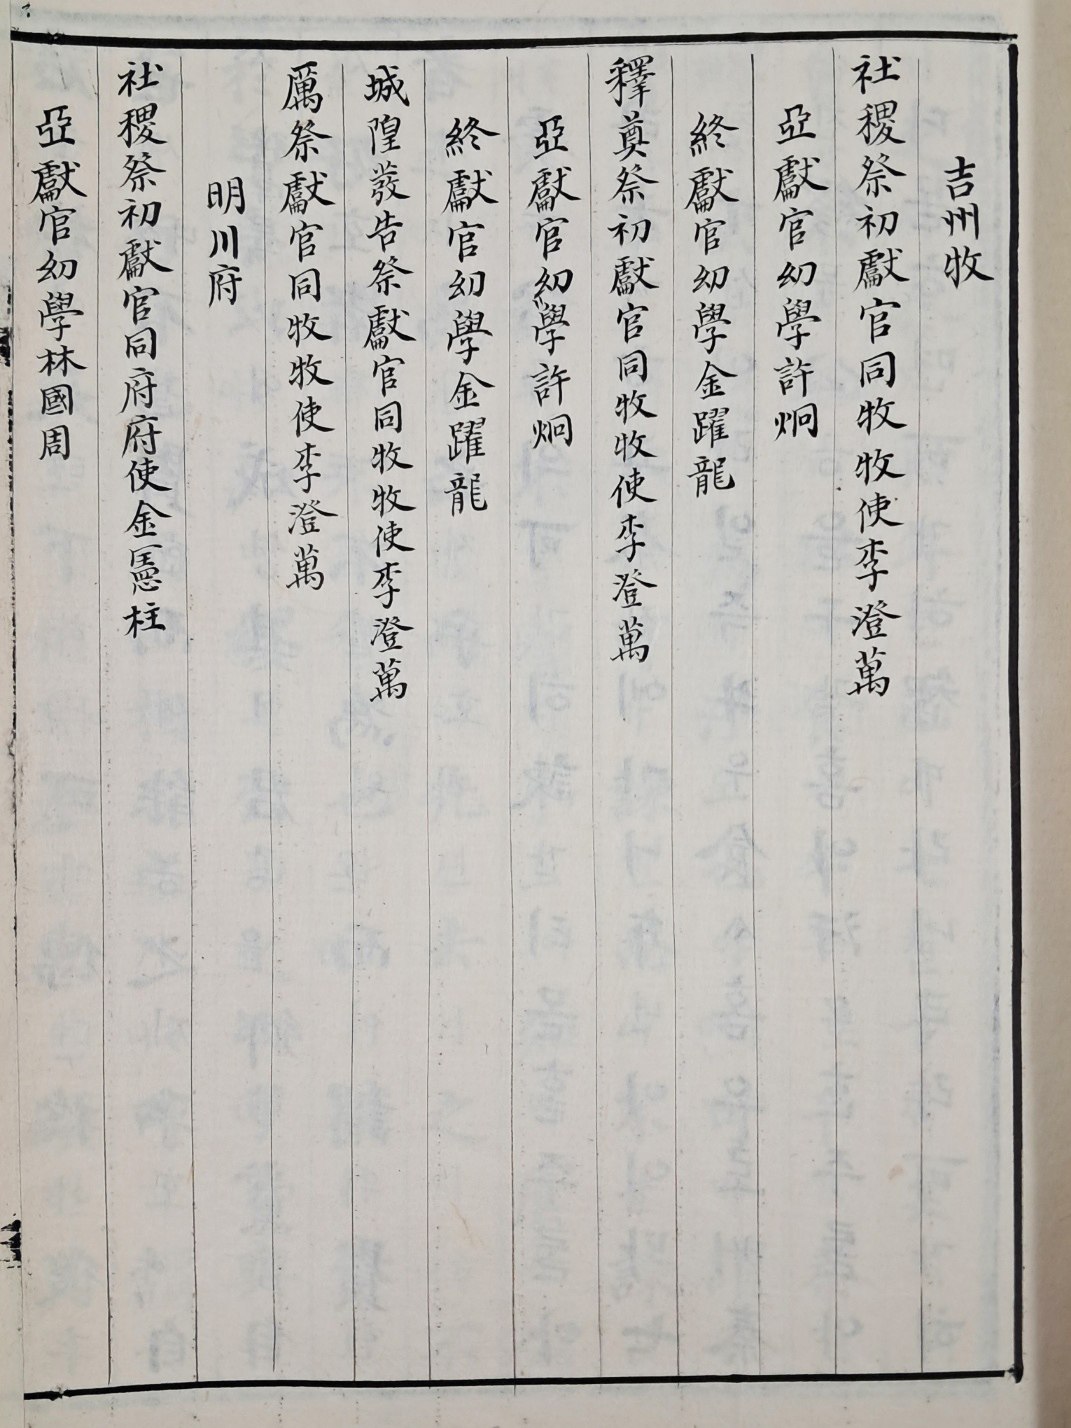 吉州牧
社稷祭初獻官同牧牧使李澄萬
亞獻官幼學許烱
終獻官幼學金躍龍
釋奠祭初獻官同牧牧使李澄萬
亞獻官幼學許烱
終獻官幼學金躍龍
城隍發告祭獻官同牧牧使李澄萬
厲祭獻官同牧牧使李澄萬
明川府
社稷祭初獻官同府府使金憲柱
亞獻官幼學林國周